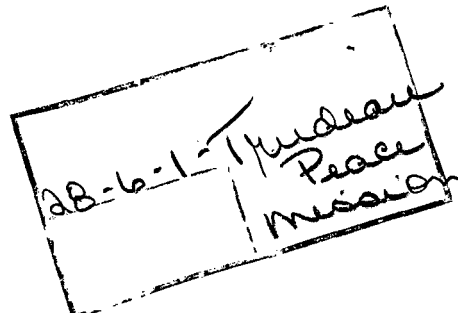 28-6-1-Trudeau
Peace
Mission